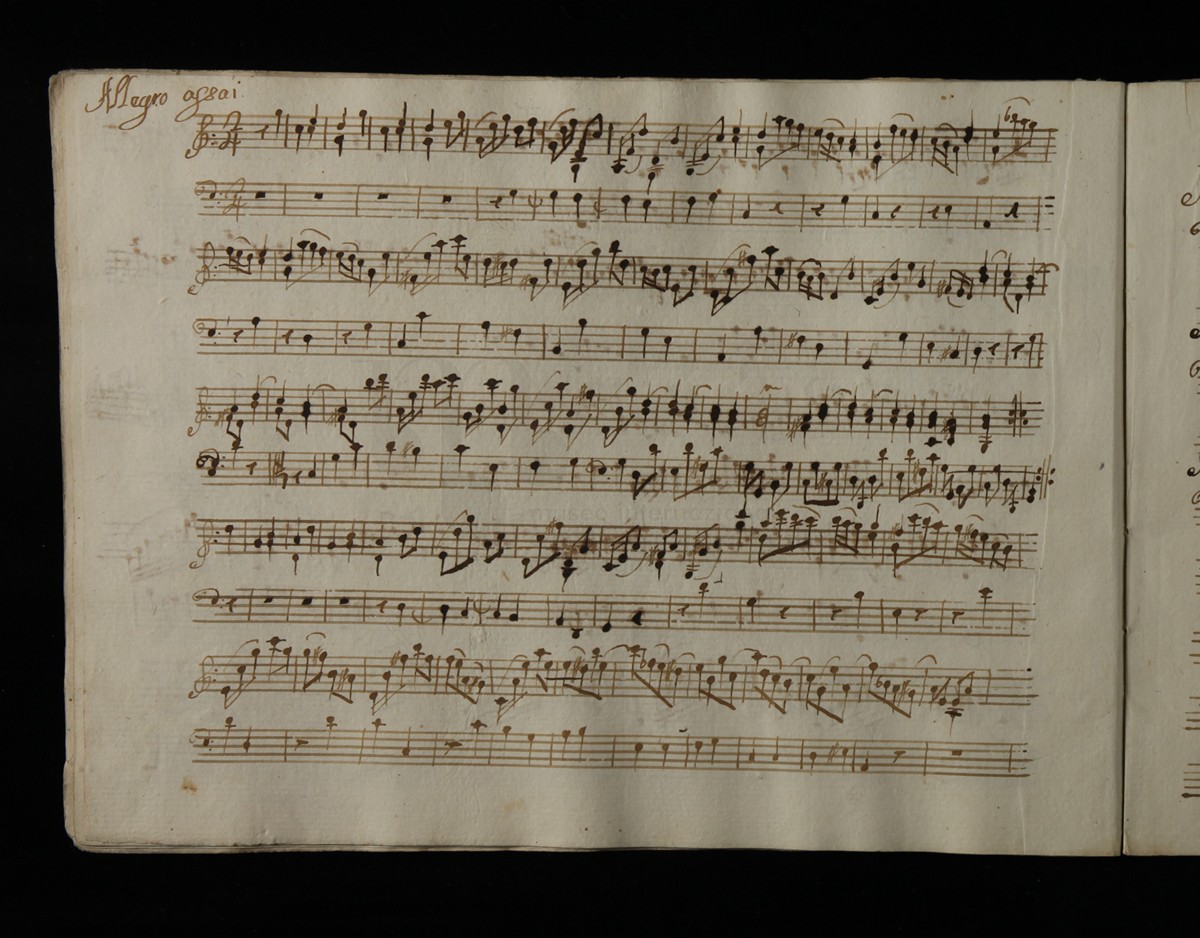 Allegro assai